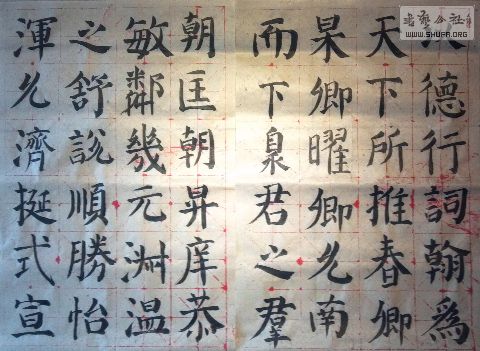 德行詞翰爲
天下所推春卿
杲卿曜卿允南
而下泉君之羣
朝匡朝昇庠恭
敏鄰幾元淑溫
之舒說順勝怡
渾允濟挺式宣
書藝公社
WWW.SHUFA.ORG